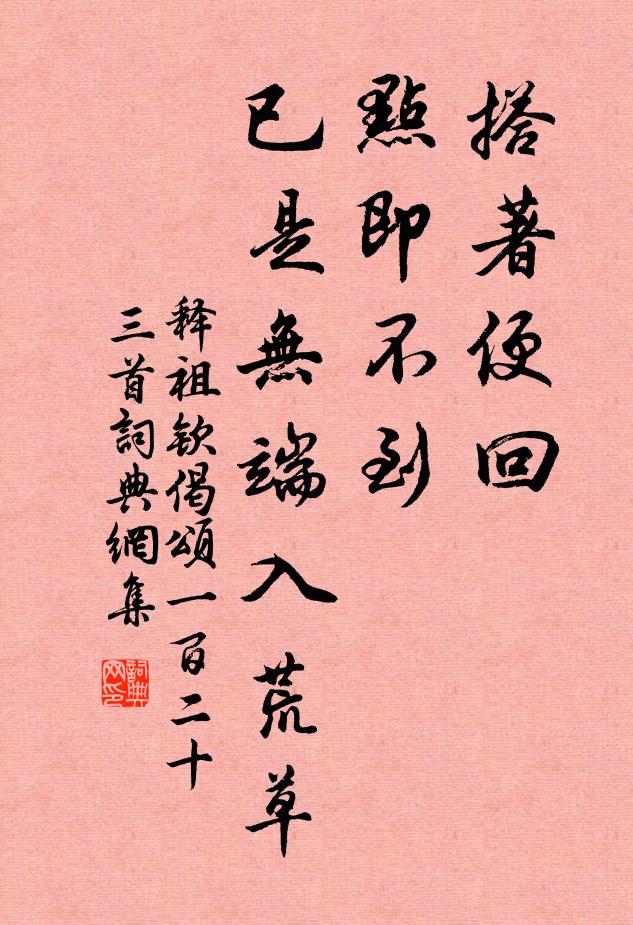 搭著便回
點即不到
已是無端入荒草
释祖欽偈頌一百二十
三首詞典網集
詞典网印